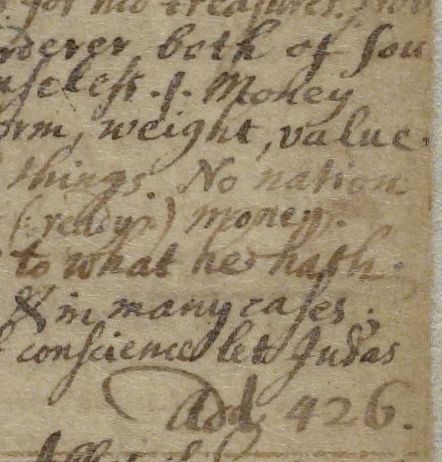 for his treasures. Nor
rderer both of sou
useless. J. Money
orm, weight, value.
things. No nation
(ready) money.
to what he hath.
& in many cases;
conscience let Judas
Add. 426.